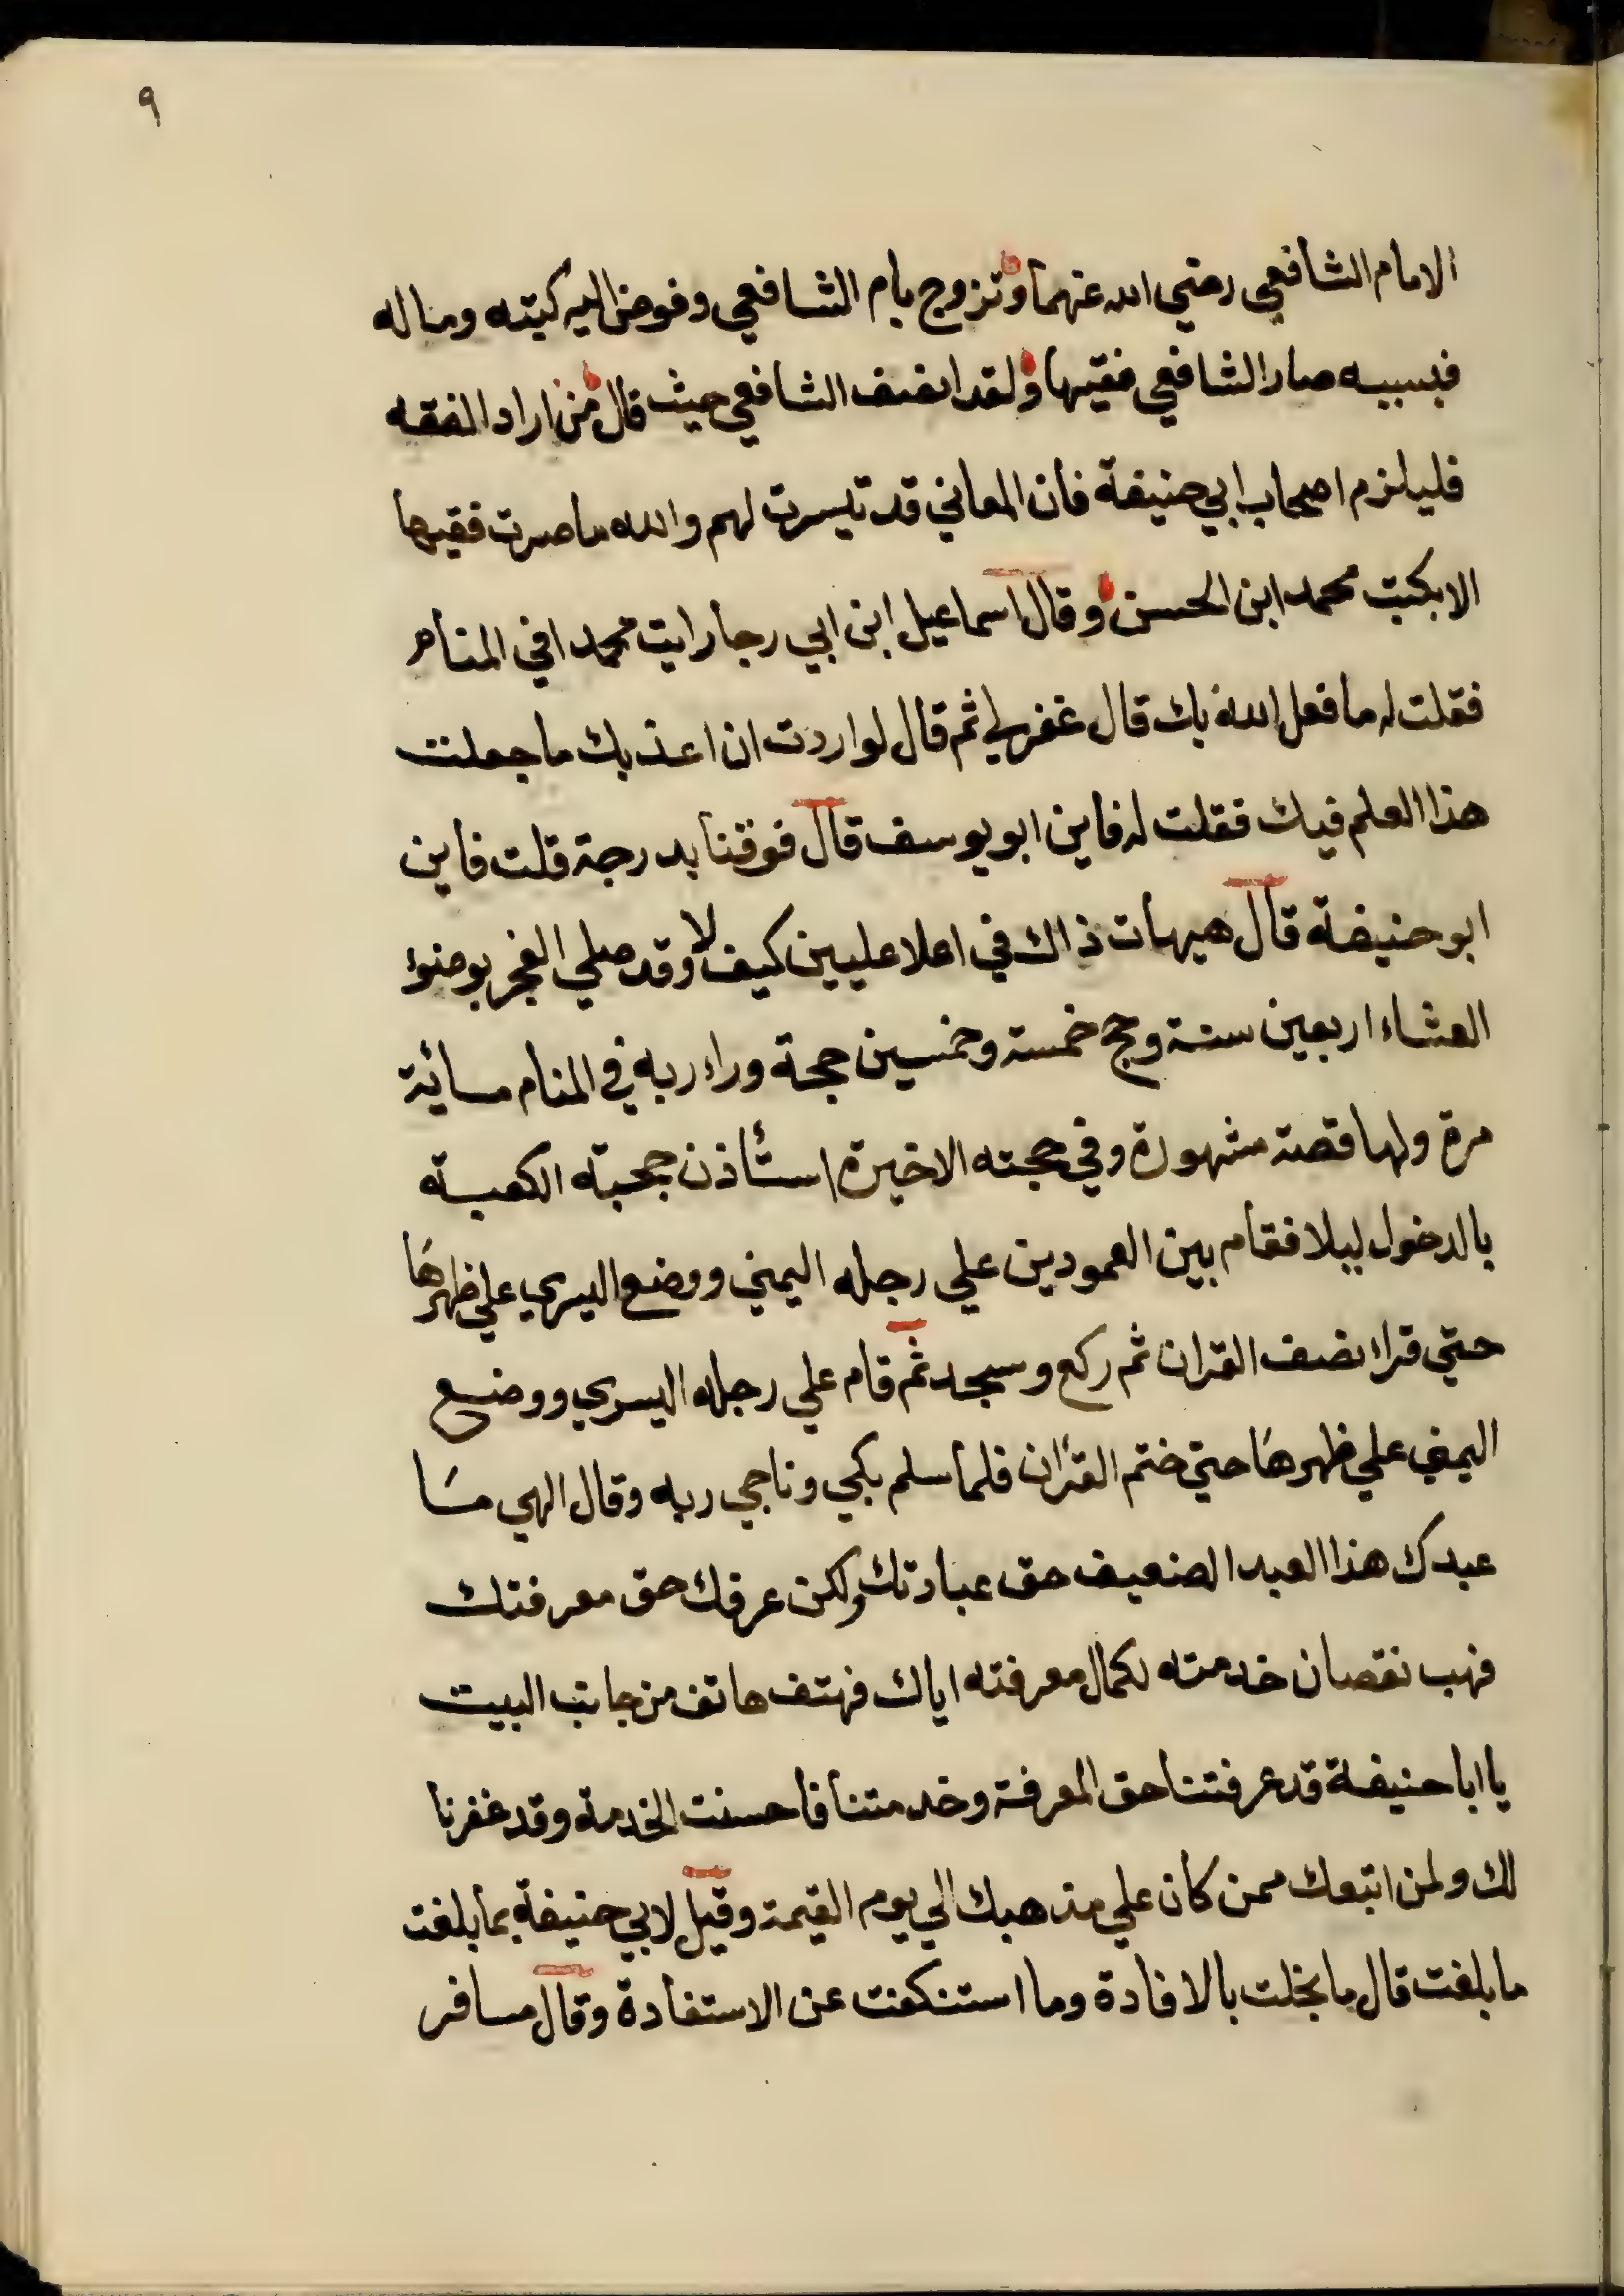 ٩
الامام الشافعي رضي الله عنهما وتزوج بام الشافعي وفوض اليه كتبه وماله
فبسببه صار الشافعي فقيها ولقد انصف الشافعي حيث قال من اراد الفقه
فليلزم اصحاب ابي حنيفة فان المعاني قد تيسرت لهم والله ما صرت فقيها
الا بكتب محمد ابن الحسن وقال اسماعيل ابن ابي رجا رايت محمدا في المنام
فقلت له ما فعل الله بك قال غفر لي ثم قال لو اردت ان اعذبك ما جعلت
هذا العلم فيك فقلت له فاين ابو يوسف قال فوقنا بدرجة قلت فاين
ابو حنيفة قال هيهات ذاك في اعلا عليين كيف لا وقد صلي الفجر بوضوء
العشاء اربعين سنة وحج خمسة وخمسين حجة وراء ربه في المنام مائة
مرة ولها قصة مشهورة وفي حجته الاخيرة استأذن حجبة الكعبة
بالدخول ليلا فقام بين العمودين علي رجله اليمني ووضع اليسري علي ظهرها
حتي قراء نصف القران ثم ركع وسجد ثم قام علي رجله اليسري ووضع
اليمني علي ظهرها حتي ختم القرأن فلما سلم بكي وناجي ربه وقال الهي ما
عبدك هذا العبد الضعيف حق عبادتك ولكن عرفك حق معرفتك
فهب نقصان خدمته لكمال معرفته اياك فهتف هاتف من جانب البيت
يا ابا حنيفة قد عرفتنا حق المعرفة وخدمتنا فاحسنت الخدمة وقد غفرنا
لك ولمن اتبعك ممن كان علي مذهبك الي يوم القيمة وقيل لابي حنيفة بما بلغت
ما بلغت قال ما بخلت بالافادة وما استنكفت عن الاستفادة وقال مسافر